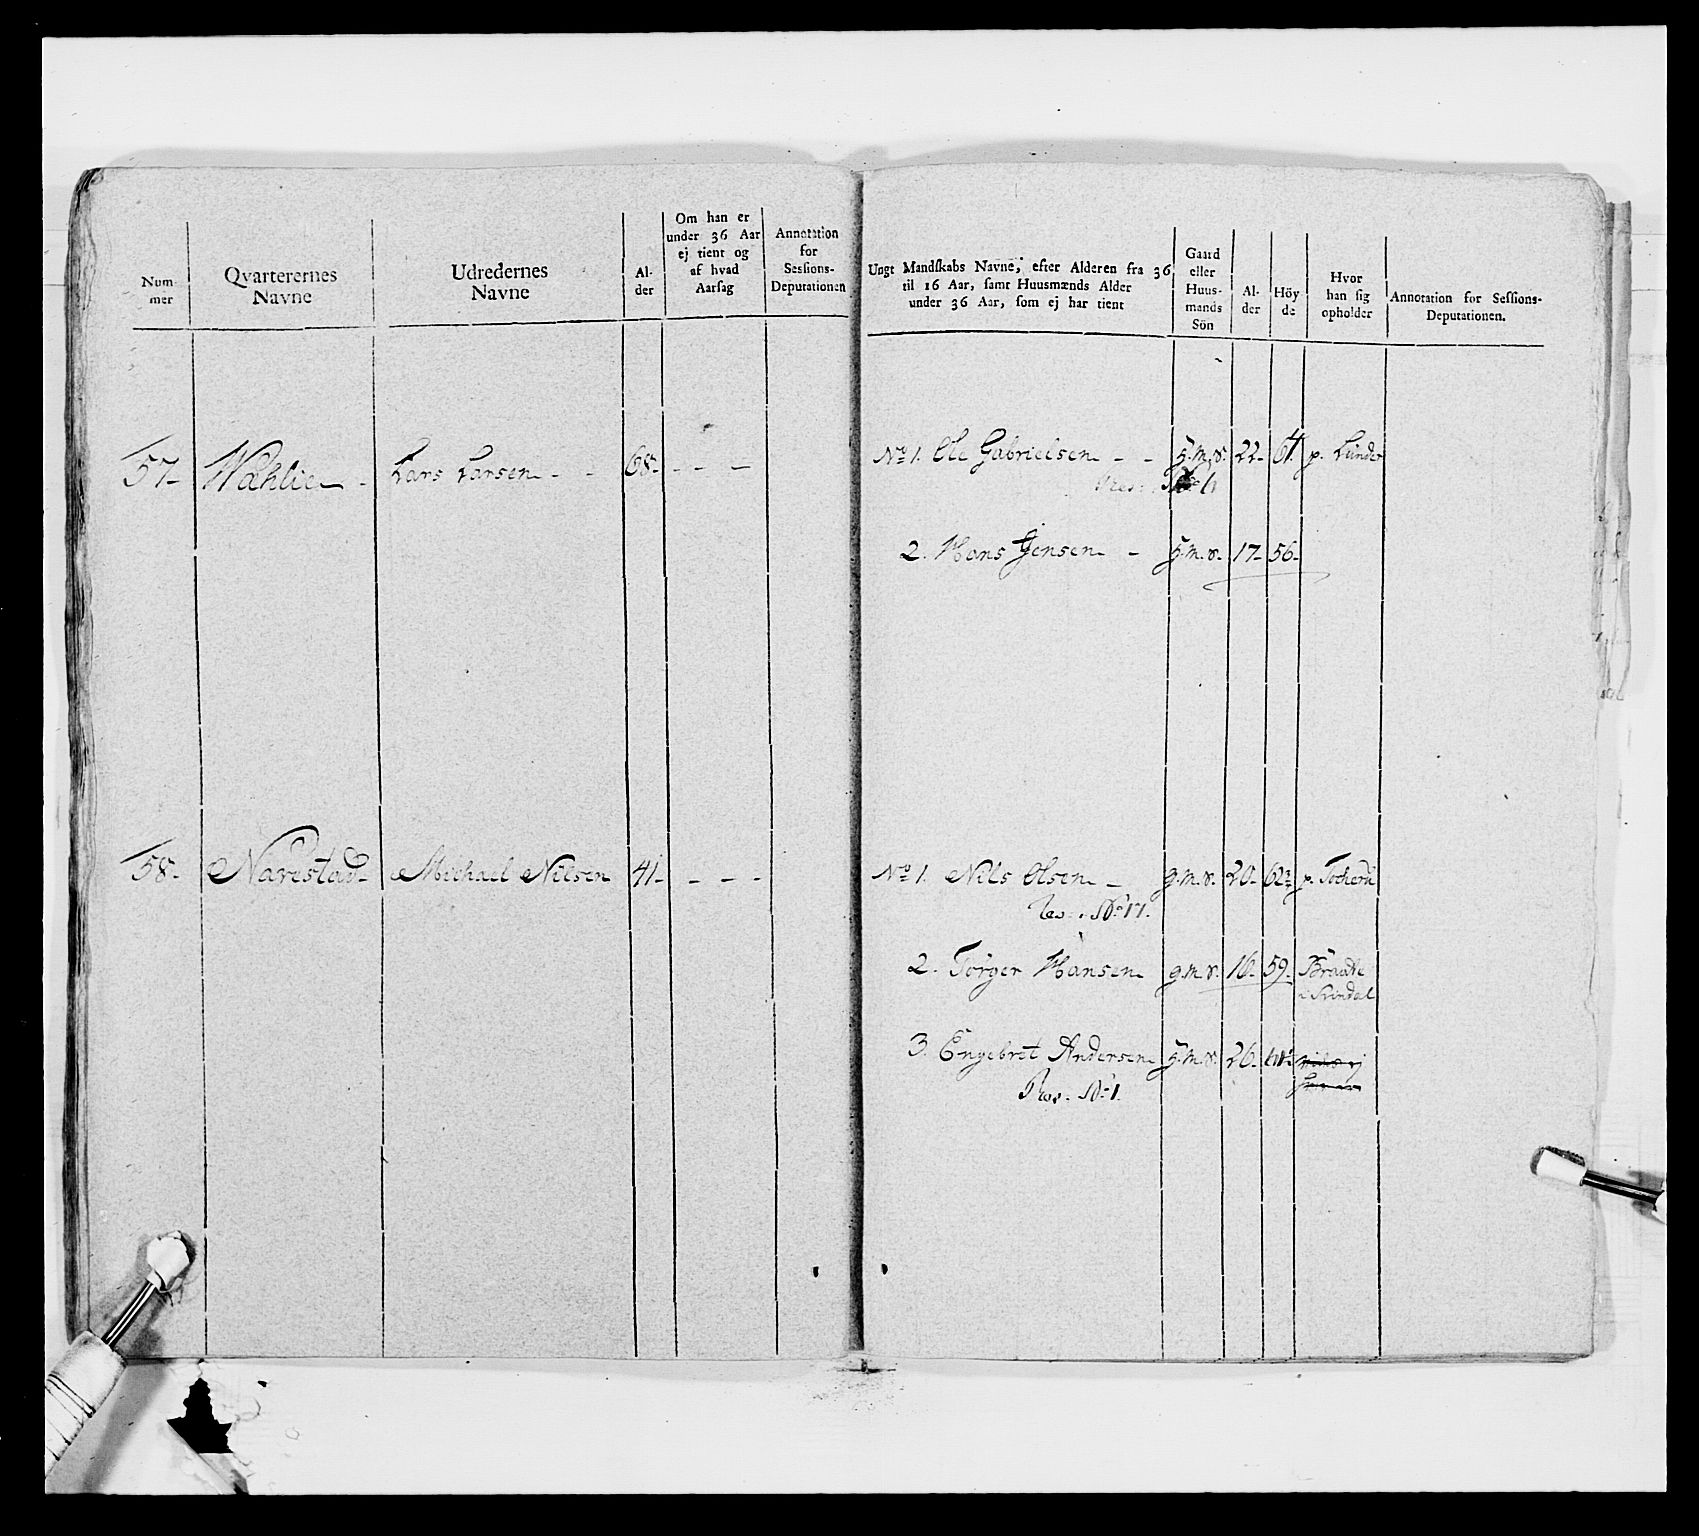 Num-
mer
Qvarterernes
Navne
Udredernes
Navne
Al-
der
Om han er
under 36 Aar
ej tient og
af hvad
Aarsag
Annotation
for
Sessions-
Deputationen
Ungt Mandskabs Navne, efter Alderen fra 36
til 16 Aar, samt Huusmænds Alder
under 36 Aar, som ej har tient
Gaard
eller
Huus-
mands
Sön
Al-
der
Höy
de
Hvor
han sig
opholder
Annotation for Sessions-
Deputationen.
57- Wahlie - Lars Larsen - - 68- - - -
No 1. Ole Gabrielsen - - h.m.s. 22- 61. p. Lunder
2. Hans Jensen - h.m.s. 17- 56-
58- Narestad- Michael Nilsen 41- - - -
No 1. Nils Olsen - g.m.s. 20- 62½ p.
Res. No 17.
2. Törger Hansen g.m.s. 16- 59- Braate
i Svindal
3. Engebret Andersen h.m.s. 26-
Res. No 1.